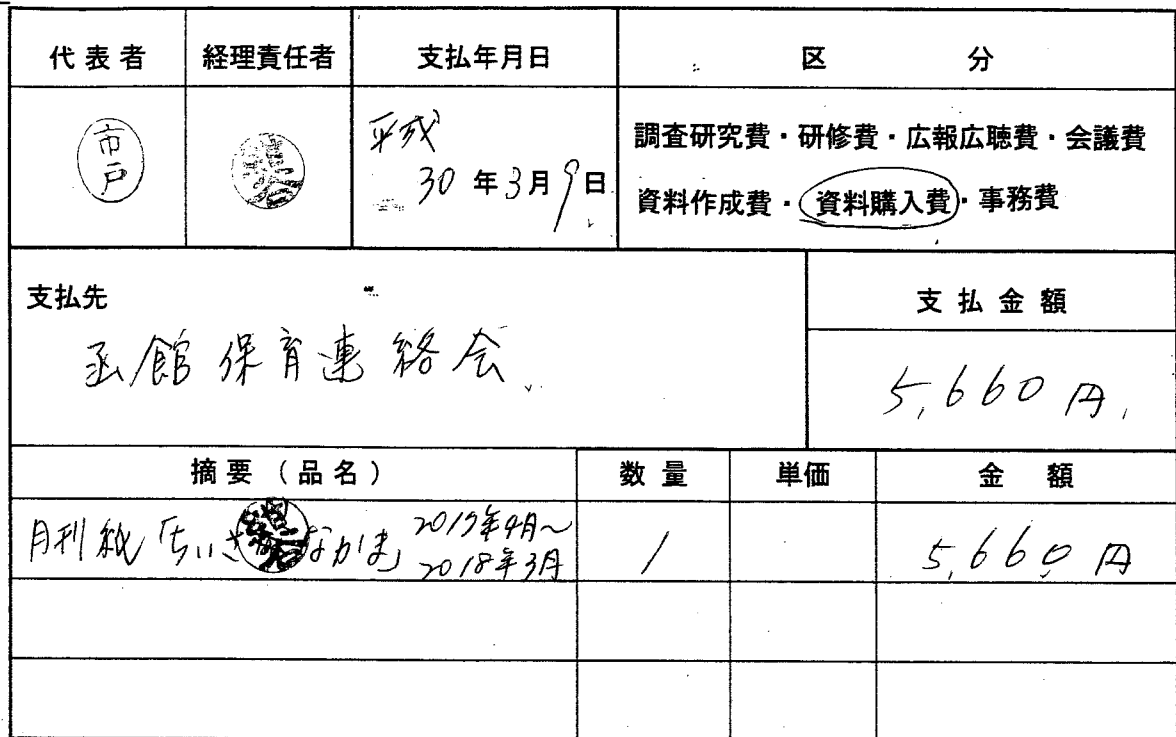 代表者 経理責任者 支払年月日 区分
市戸
平成
30年3月9日
調査研究費・研修費・広報広聴費・会議費
資料作成費・資料購入費・事務費
支払先
函館保育連絡会
支払金額
5,660円
摘要(品名) 数量 単価 金額
月刊紙「ちいさ なかま」 2017年4月~ 2018年3月 1 5,660円